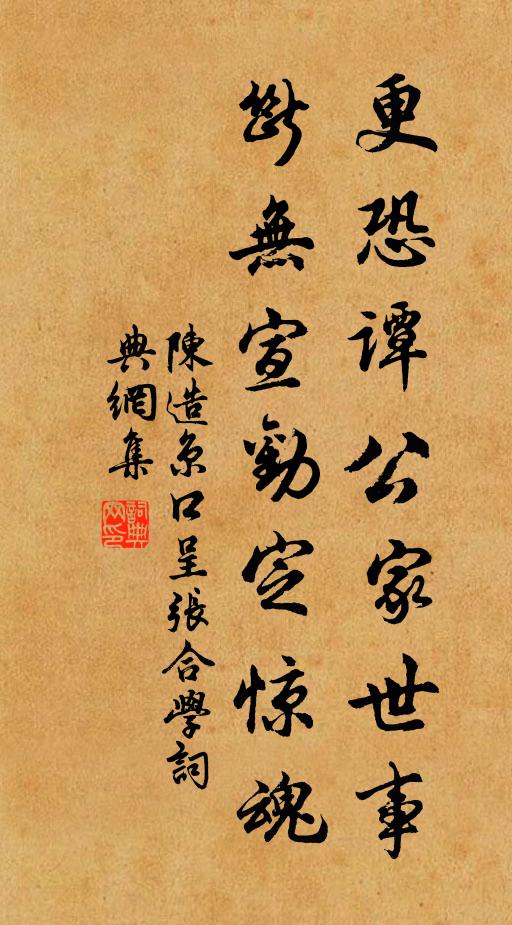 更恐譚公家世事
断無宣勸定惊魂
陳造京口呈張合學詞
典網集
詞典网印